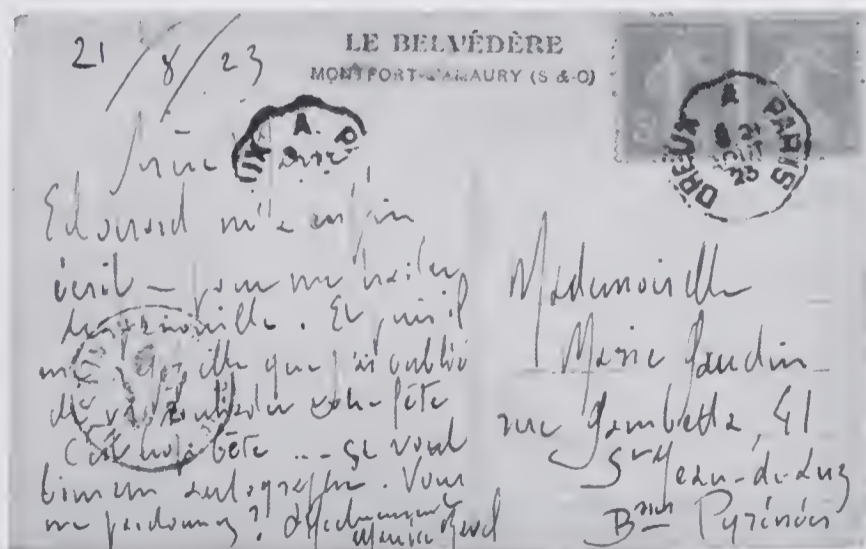 21/8/23
LE BELVÉDÈRE
MONTFORT-L'AMAURY (S & O)
UX A P
DREUX A PARIS
23
Edouard m'a enfin
écrit — pour me traiter
. Et puis il
que j'ai oublié
de vous souhaiter votre fête
C'est trop bête ... ça vaut
bien un autographe. Vous
me pardonnez? Affectueusement
Maurice Ravel
Mademoiselle
Marie Gaudin
rue Gambetta, 41
St Jean-de-Luz
Bses Pyrénées